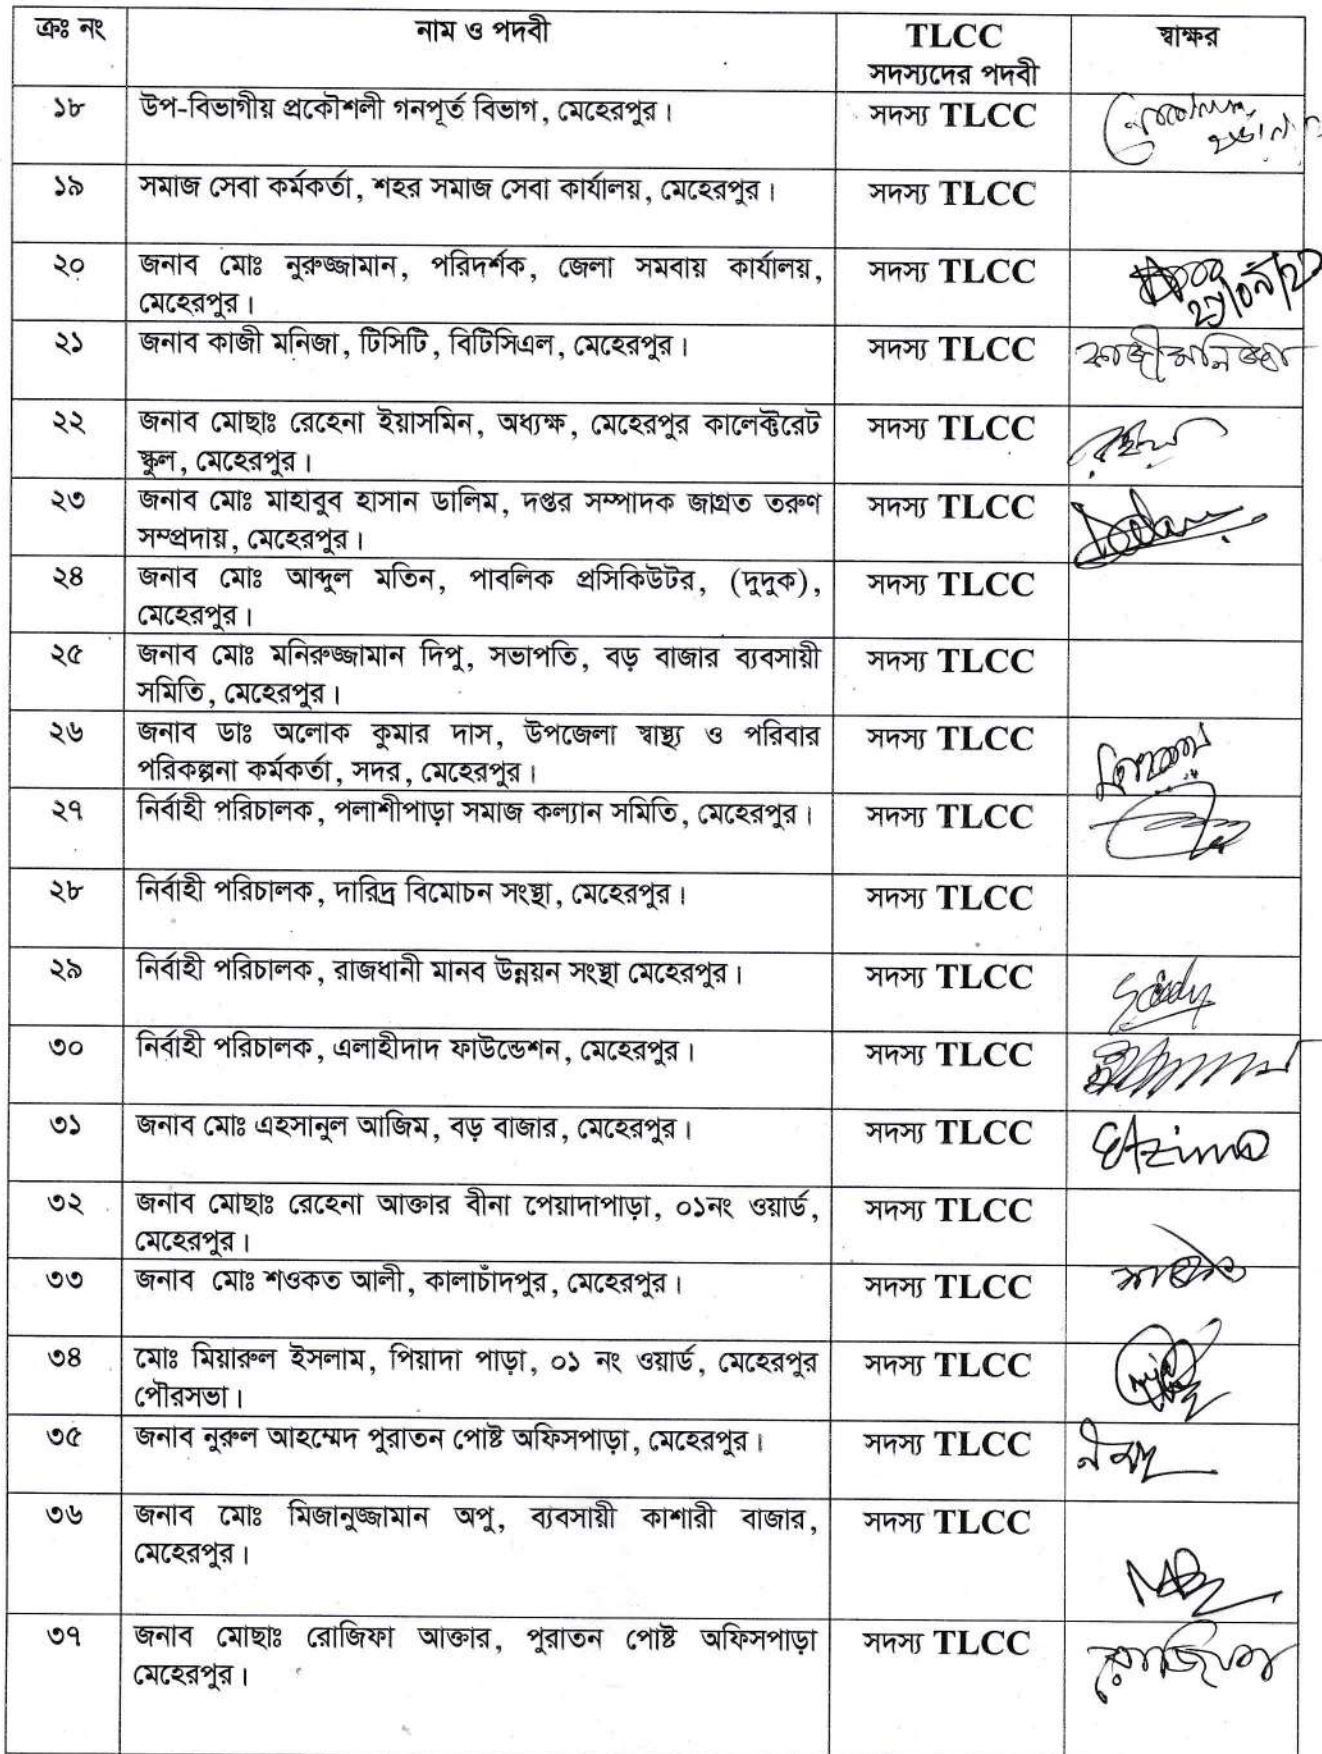 ক্রঃ নং নাম ও পদবী TLCC স্বাক্ষর
সদস্যদের পদবী
১৮ উপ-বিভাগীয় প্রকৌশলী গনপূর্ত বিভাগ, মেহেরপুর। সদস্য TLCC
১৯ সমাজ সেবা কর্মকর্তা, শহর সমাজ সেবা কার্যালয়, মেহেরপুর। সদস্য TLCC
২০ জনাব মোঃ নুরুজ্জামান, পরিদর্শক, জেলা সমবায় কার্যালয়, সদস্য TLCC
মেহেরপুর।
২১ জনাব কাজী মনিজা, টিসিটি, বিটিসিএল, মেহেরপুর। সদস্য TLCC কাজী মনিজা
২২ জনাব মোছাঃ রেহেনা ইয়াসমিন, অধ্যক্ষ, মেহেরপুর কালেক্টরেট সদস্য TLCC
স্কুল, মেহেরপুর।
২৩ জনাব মোঃ মাহাবুব হাসান ডালিম, দপ্তর সম্পাদক জাগ্রত তরুণ সদস্য TLCC
সম্প্রদায়, মেহেরপুর।
২৪ জনাব মোঃ আব্দুল মতিন, পাবলিক প্রসিকিউটর, (দুদুক), সদস্য TLCC
মেহেরপুর।
২৫ জনাব মোঃ মনিরুজ্জামান দিপু, সভাপতি, বড় বাজার ব্যবসায়ী সদস্য TLCC
সমিতি, মেহেরপুর।
২৬ জনাব ডাঃ অলোক কুমার দাস, উপজেলা স্বাস্থ্য ও পরিবার সদস্য TLCC
পরিকল্পনা কর্মকর্তা, সদর, মেহেরপুর।
২৭ নির্বাহী পরিচালক, পলাশীপাড়া সমাজ কল্যান সমিতি, মেহেরপুর। সদস্য TLCC
২৮ নির্বাহী পরিচালক, দারিদ্র বিমোচন সংস্থা, মেহেরপুর। সদস্য TLCC
২৯ নির্বাহী পরিচালক, রাজধানী মানব উন্নয়ন সংস্থা মেহেরপুর। সদস্য TLCC
৩০ নির্বাহী পরিচালক, এলাহীদাদ ফাউন্ডেশন, মেহেরপুর। সদস্য TLCC
৩১ জনাব মোঃ এহসানুল আজিম, বড় বাজার, মেহেরপুর। সদস্য TLCC EAzim
৩২ জনাব মোছাঃ রেহেনা আক্তার বীনা পেয়াদাপাড়া, ০১নং ওয়ার্ড, সদস্য TLCC
মেহেরপুর।
৩৩ জনাব মোঃ শওকত আলী, কালাচাঁদপুর, মেহেরপুর। সদস্য TLCC
৩৪ মোঃ মিয়ারুল ইসলাম, পিয়াদা পাড়া, ০১ নং ওয়ার্ড, মেহেরপুর সদস্য TLCC
পৌরসভা।
৩৫ জনাব নুরুল আহম্মেদ পুরাতন পোষ্ট অফিসপাড়া, মেহেরপুর। সদস্য TLCC
৩৬ জনাব মোঃ মিজানুজ্জামান অপু, ব্যবসায়ী কাশারী বাজার, সদস্য TLCC
মেহেরপুর।
৩৭ জনাব মোছাঃ রোজিফা আক্তার, পুরাতন পোষ্ট অফিসপাড়া সদস্য TLCC রোজিফা
মেহেরপুর।